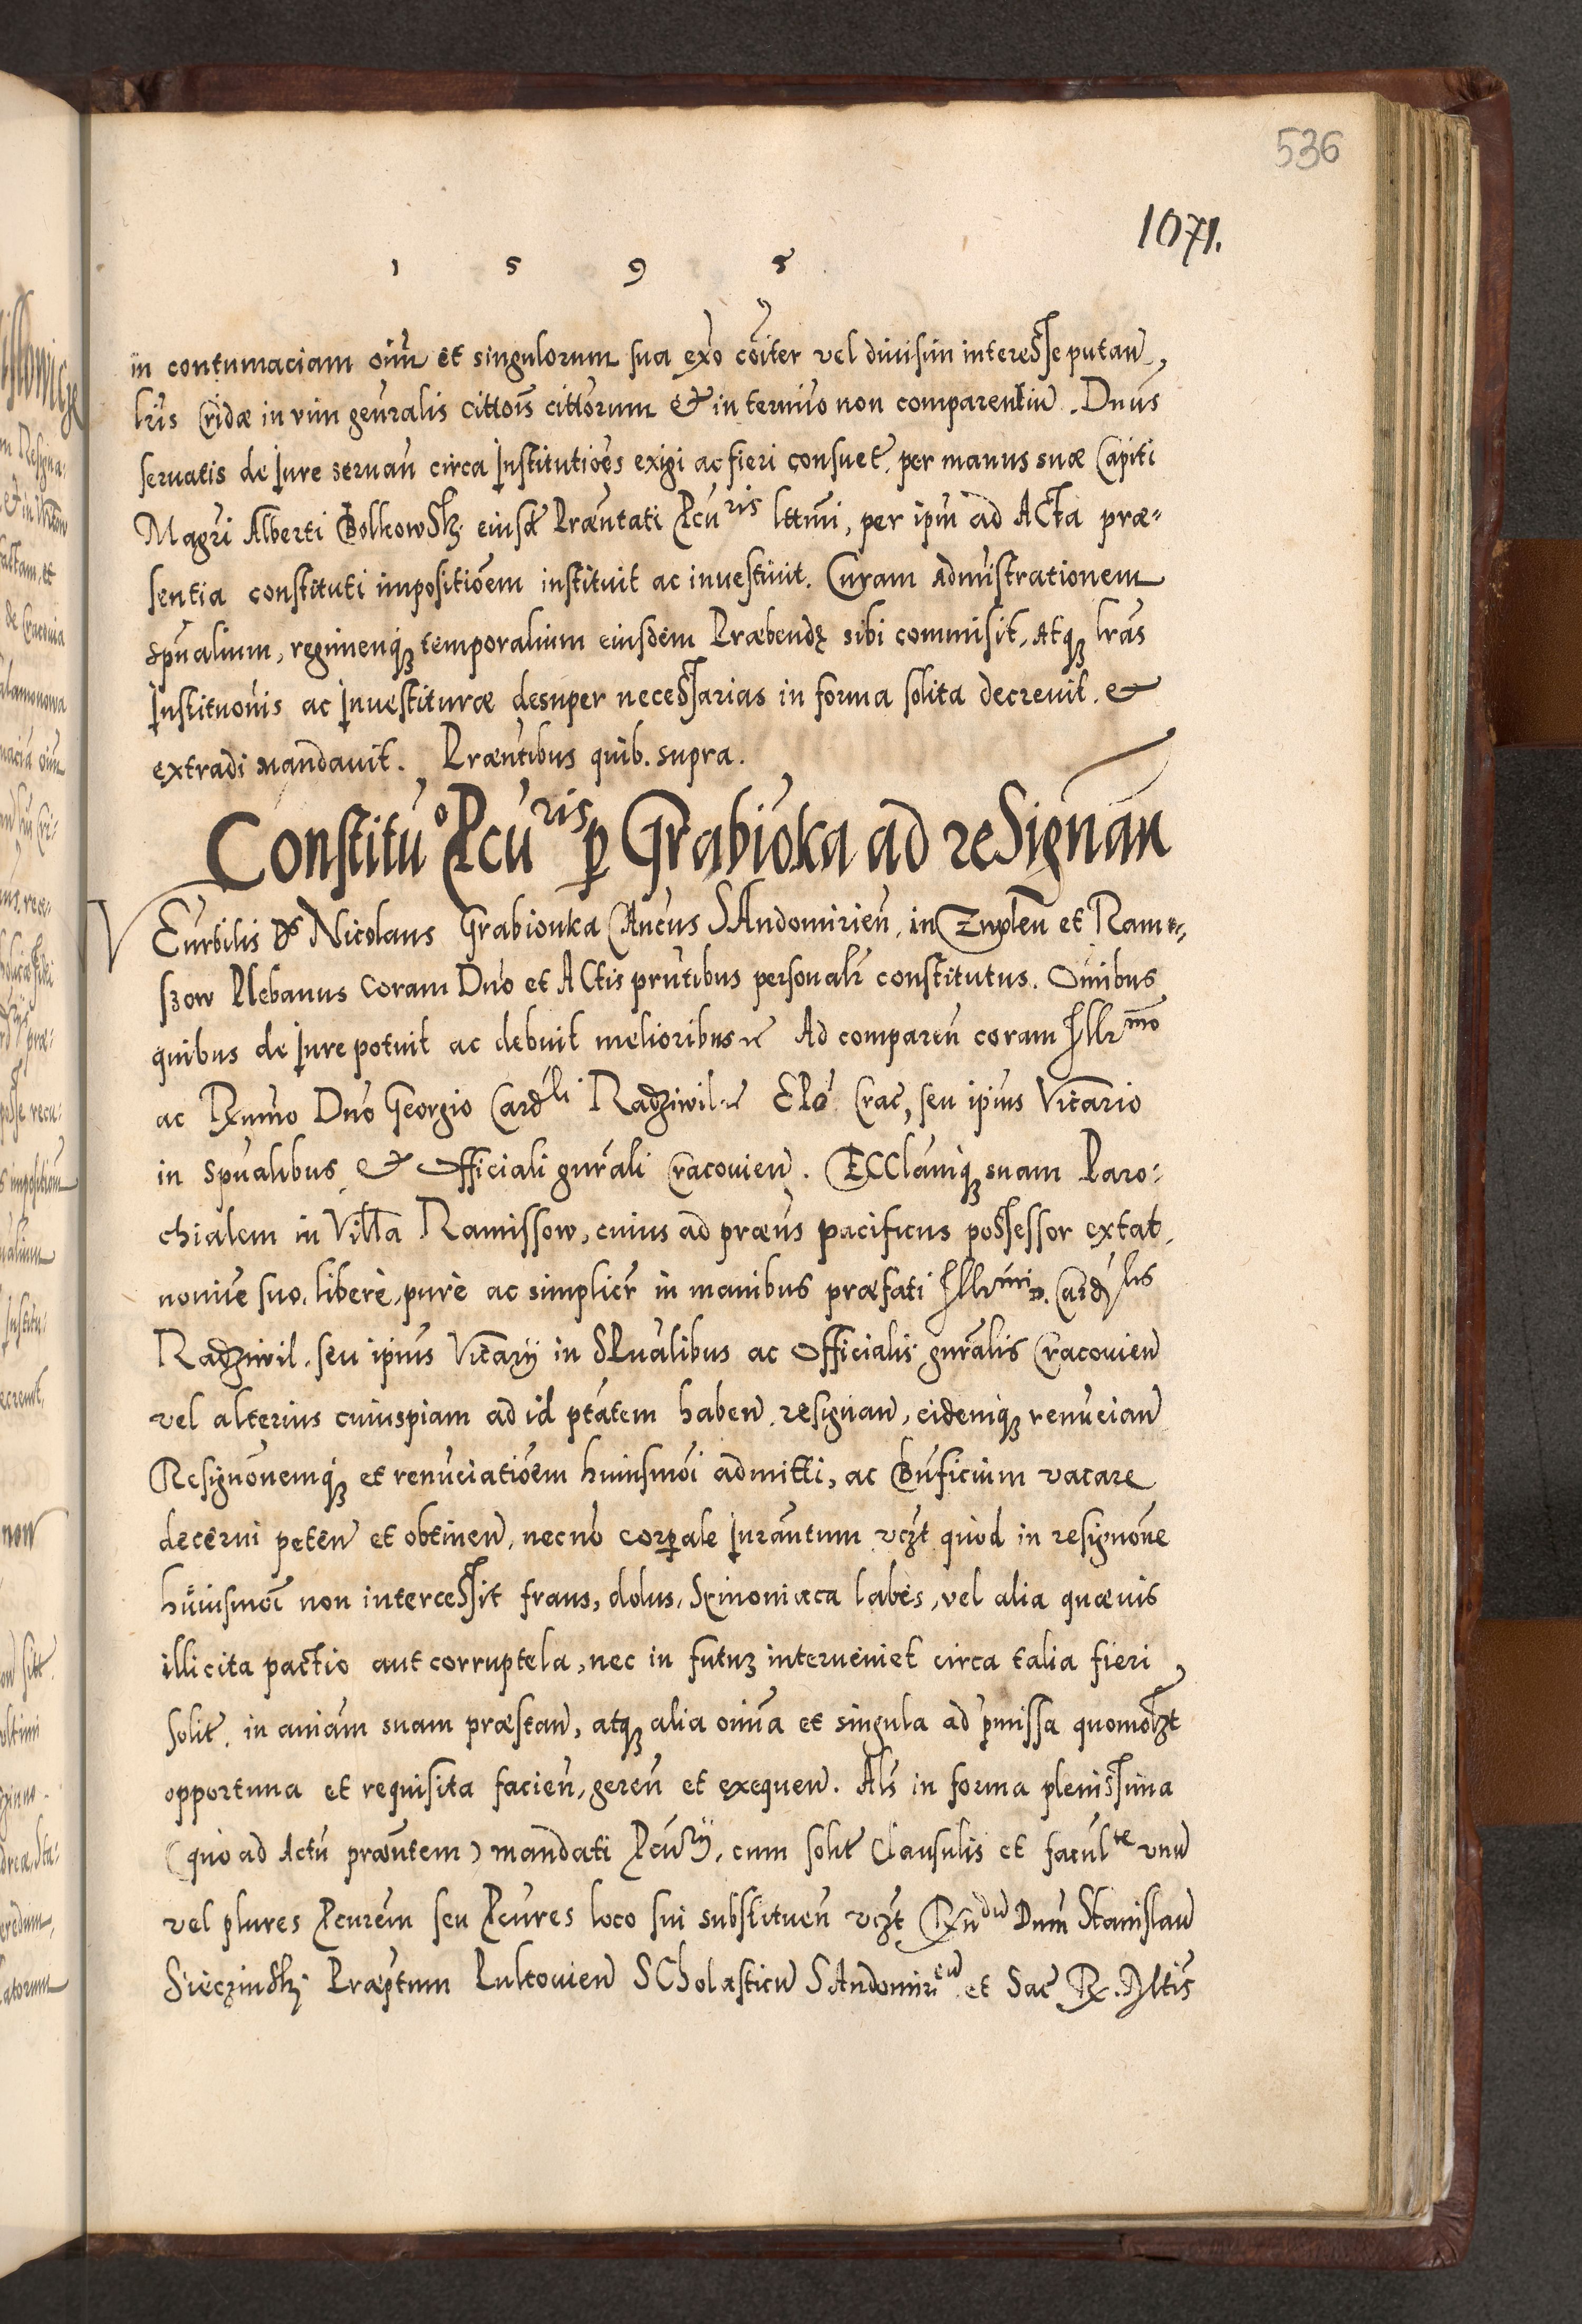 536
1071.
1 5 9 5
in contumaciam oīm et singulorum sua exō cōiter vel diuisim interesse putan,
lris Cridæ in vim genralis cittois cittorum & in termino non comparentiū. Dnus
seruatis de Iure seruan circa Institutiões exigi ac fieri consuet. per manus suæ Capiti
Magri Alberti Bolkowskÿ eiusd Præntati Pcuris lttmi, per ipm ad Acta præ-
sentia constituti impositiōem instituit ac inuestiuit. Curam Admistrationem
spualium, regimenq; temporalium eiusdem Præbendę sibi commisit, Atq; lras
Instituonis ac Inuestituræ desuper necessarias in forma solita decreuit. &
extradi mandauit. Præntibus quib. supra.
Constituo Pcuris p Grabionka ad resignan
Venrbilis Ds Nicolaus Grabionka Cancus Sandomirien, in et Rami-
szow Plebanus Coram Dno et Actis prntibus personalr constitutus. Omnibus
quibus de Iure potuit ac debuit melioribus Ad comparen coram Illrmo
ac Rxmo Dno Georgio Cardli Radziwil Epo Crac, seu ipius Vicario
in spualibus & Officiali gnrali Cracouien. Ecclamq; suam Paro-
chialem in Villa Ramissow, cuius ad præns pacificus possessor extat,
nomine suo, liberè, purè ac simplicr in manibus præfati Illrmi D. Cardlis
Radziwil. seu ipius Vicarÿ in Spualibus ac Officialis gnralis Cracouien
vel alterius cuiuspiam ad id ptatem haben. resignan, eidemq; renuncian
Resignonemq; et renunciatiōem huiusmōi admitti, ac Bnficium vacare
decerni peten et obtinen, necno corpale Iurantum vczt quod in resignone
huiusmōi non intercessit fraus, dolus, Simoniaca labes, vel alia quæuis
illicita pactio aut corruptela, nec in futuȝ interueniet circa talia fieri
solit. in aniam suam præstan, atq; alia omnia et singula ad pmissa quomōlzt
opportuna et requisita facien, geren et exequen. Als in forma plenissima
(quo ad Actu præntem) mandati Pcurÿ, cum solit Clausulis et facultte vnū
vel plures Pcurem seu Pcures loco sui substituen vczt Rxndū Dnm Stanislaū
Siecżinskÿ Præptum Pultouien Scholasticū Sandomirien et Sac R. Mtis